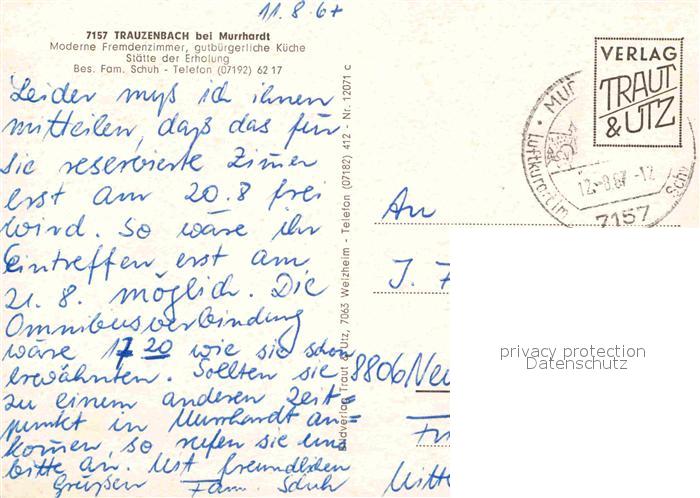 11.8.67
7157 TRAUZENBACH bei Murrhardt
Moderne Fremdenzimmer, gutbürgerliche Küche
Stätte der Erholung
Bes. Fam. Schuh - Telefon (07192) 62 17
Leider muß ich ihnen
mitteilen, daß das für
sie reservierte Zimer
erst am 20.8 frei
wird. So wäre ihr
Eintreffen erst am
21.8. möglich. Die
Omnibusverbindung
wäre 17 20 wie sie schon
erwähnten. Sollten sie
zu einem anderen Zeit=
punkt in Murrhardt an=
komen, so rufen sie uns
bitte an. Mit freundlichen
Grüßen Fam. Schuh
Bildverlag Traut & Utz, 7063 Welzheim - Telefon (07182) 412 - Nr. 12071 c
VERLAG
TRAUT
& UTZ
Luftkurort im
12.-8.67.-12
7157
An
J. F
8806 Neu
Mitte
privacy protection
Datenschutz